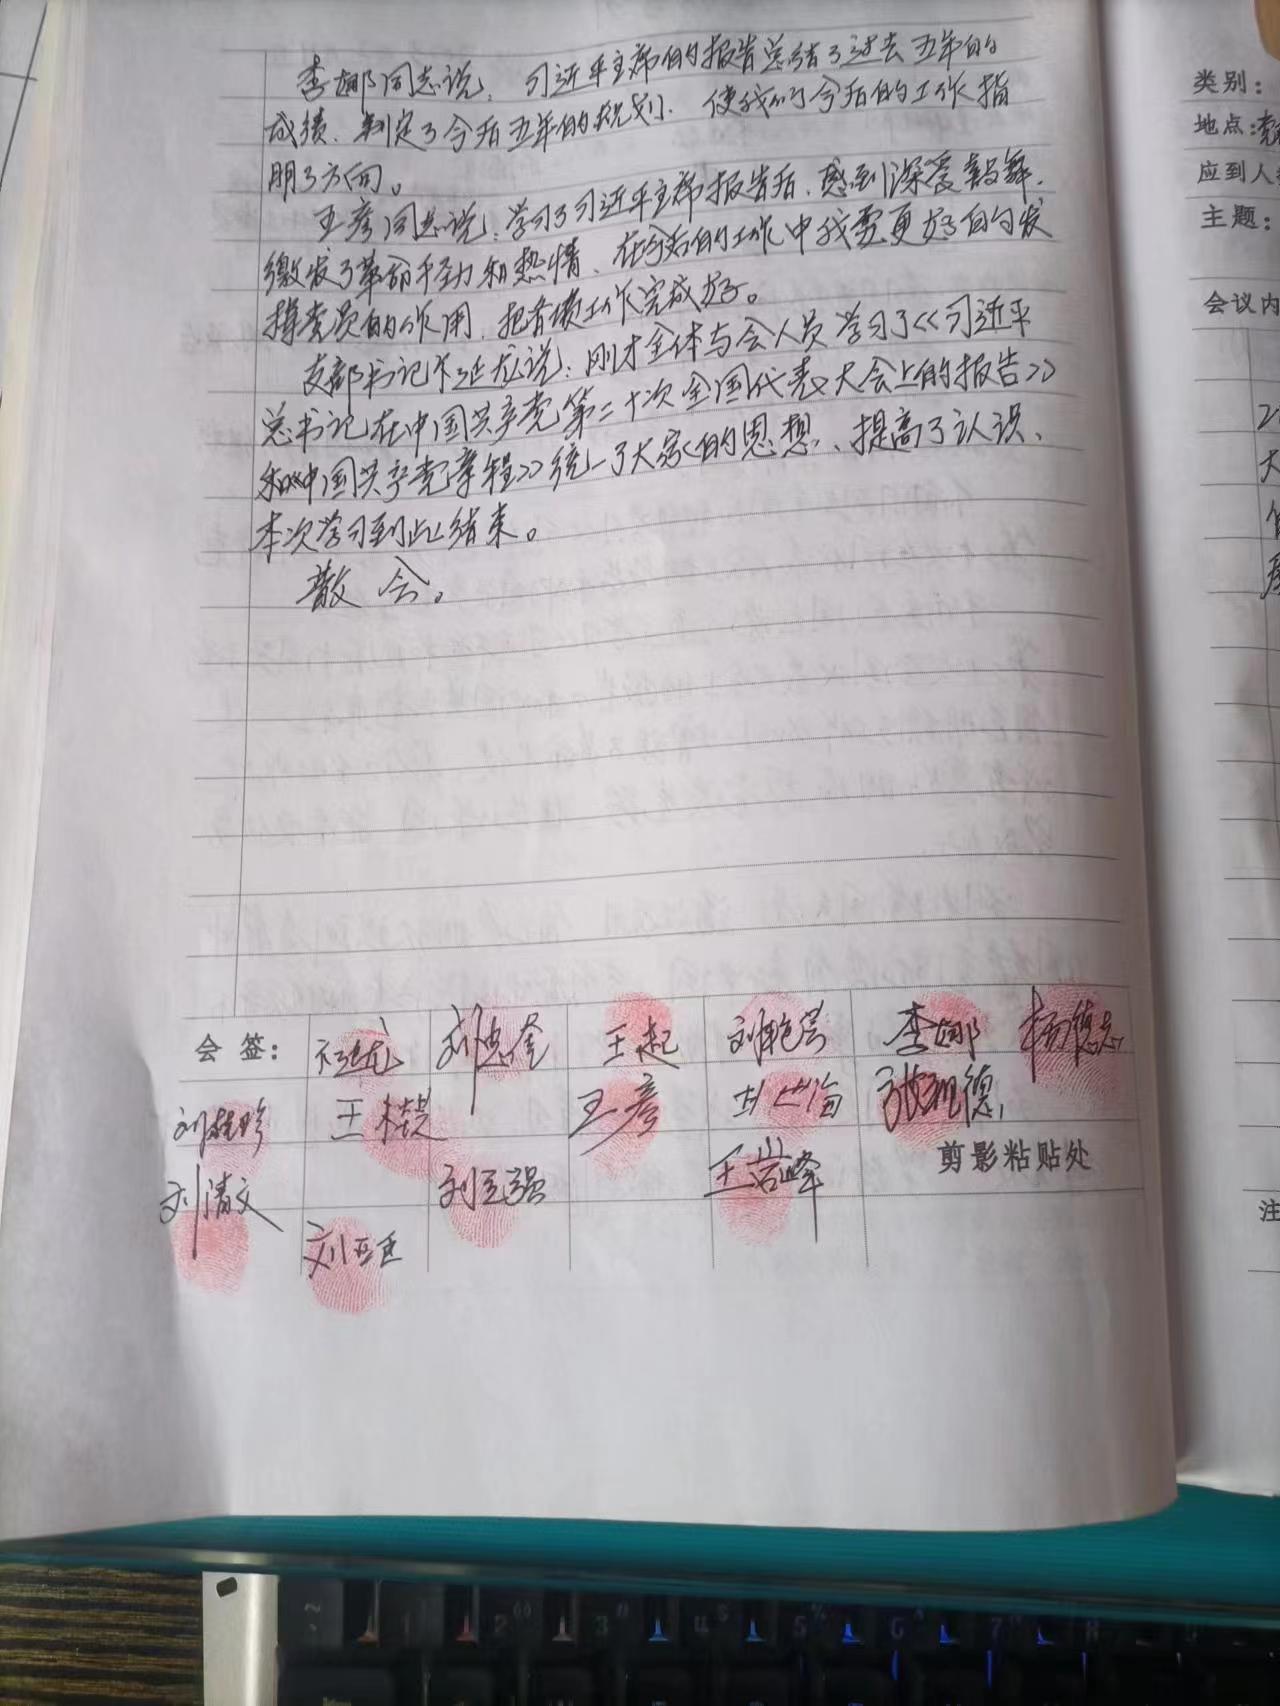 李娜同志说：习近平主席的报告总结了过去五年的
成绩、制定了今后五年的规划、使我们今后的工作指
明了方向。
王彦同志说：学习了习近平主席报告后，感到深受鼓舞，
激发了革命干劲和热情、在今后的工作中我要更好的发
挥党员的作用，把各项工作完成好。
支部书记 延龙说：刚才全体与会人员学习了《习近平
总书记在中国共产党第二十次全国代表大会上的报告》
和《中国共产党章程》统一了大家的思想、提高了认识、
本次学习到此结束。
散会。
会签：
延龙 刘忠奎 王起 刘艳芳 李娜 杨德志
刘桂珍 王桂芝 王彦 海 张祖德
刘清文 刘玉强 王岩峰 剪影粘贴处
刘亚
类别：
地点：党
应到人
主题：
会议内
大
注